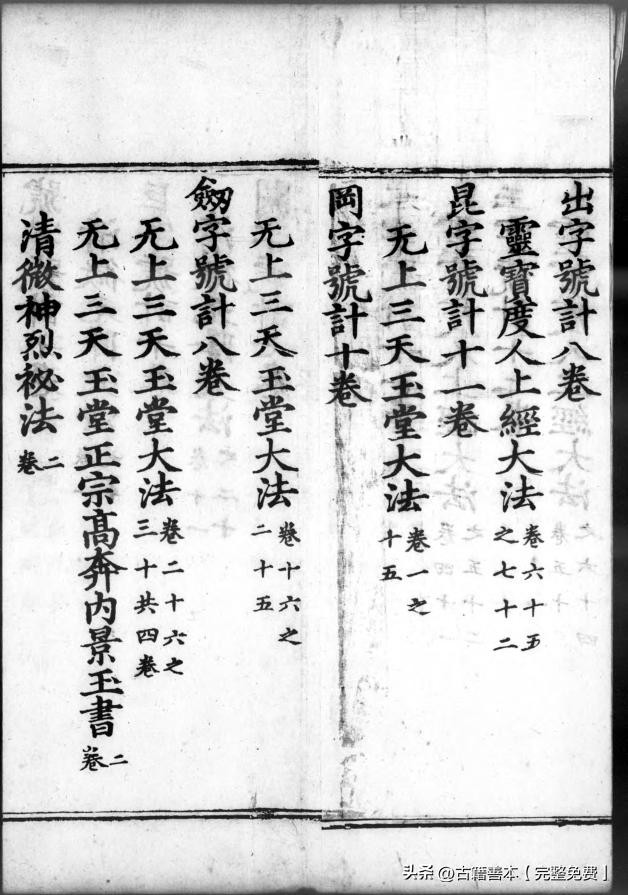 出字號計八卷
靈寶度人上經大法 卷六十五之七十二
昆字號計十一卷
无上三天玉堂大法 卷一之十五
岡字號計十卷
无上三天玉堂大法 卷十六之二十五
劔字號計八卷
无上三天玉堂大法 卷二十六之三十共四卷
无上三天玉堂正宗高奔內景玉書 二卷
清微神烈祕法 二卷
头条 @古籍善本【完整免费】